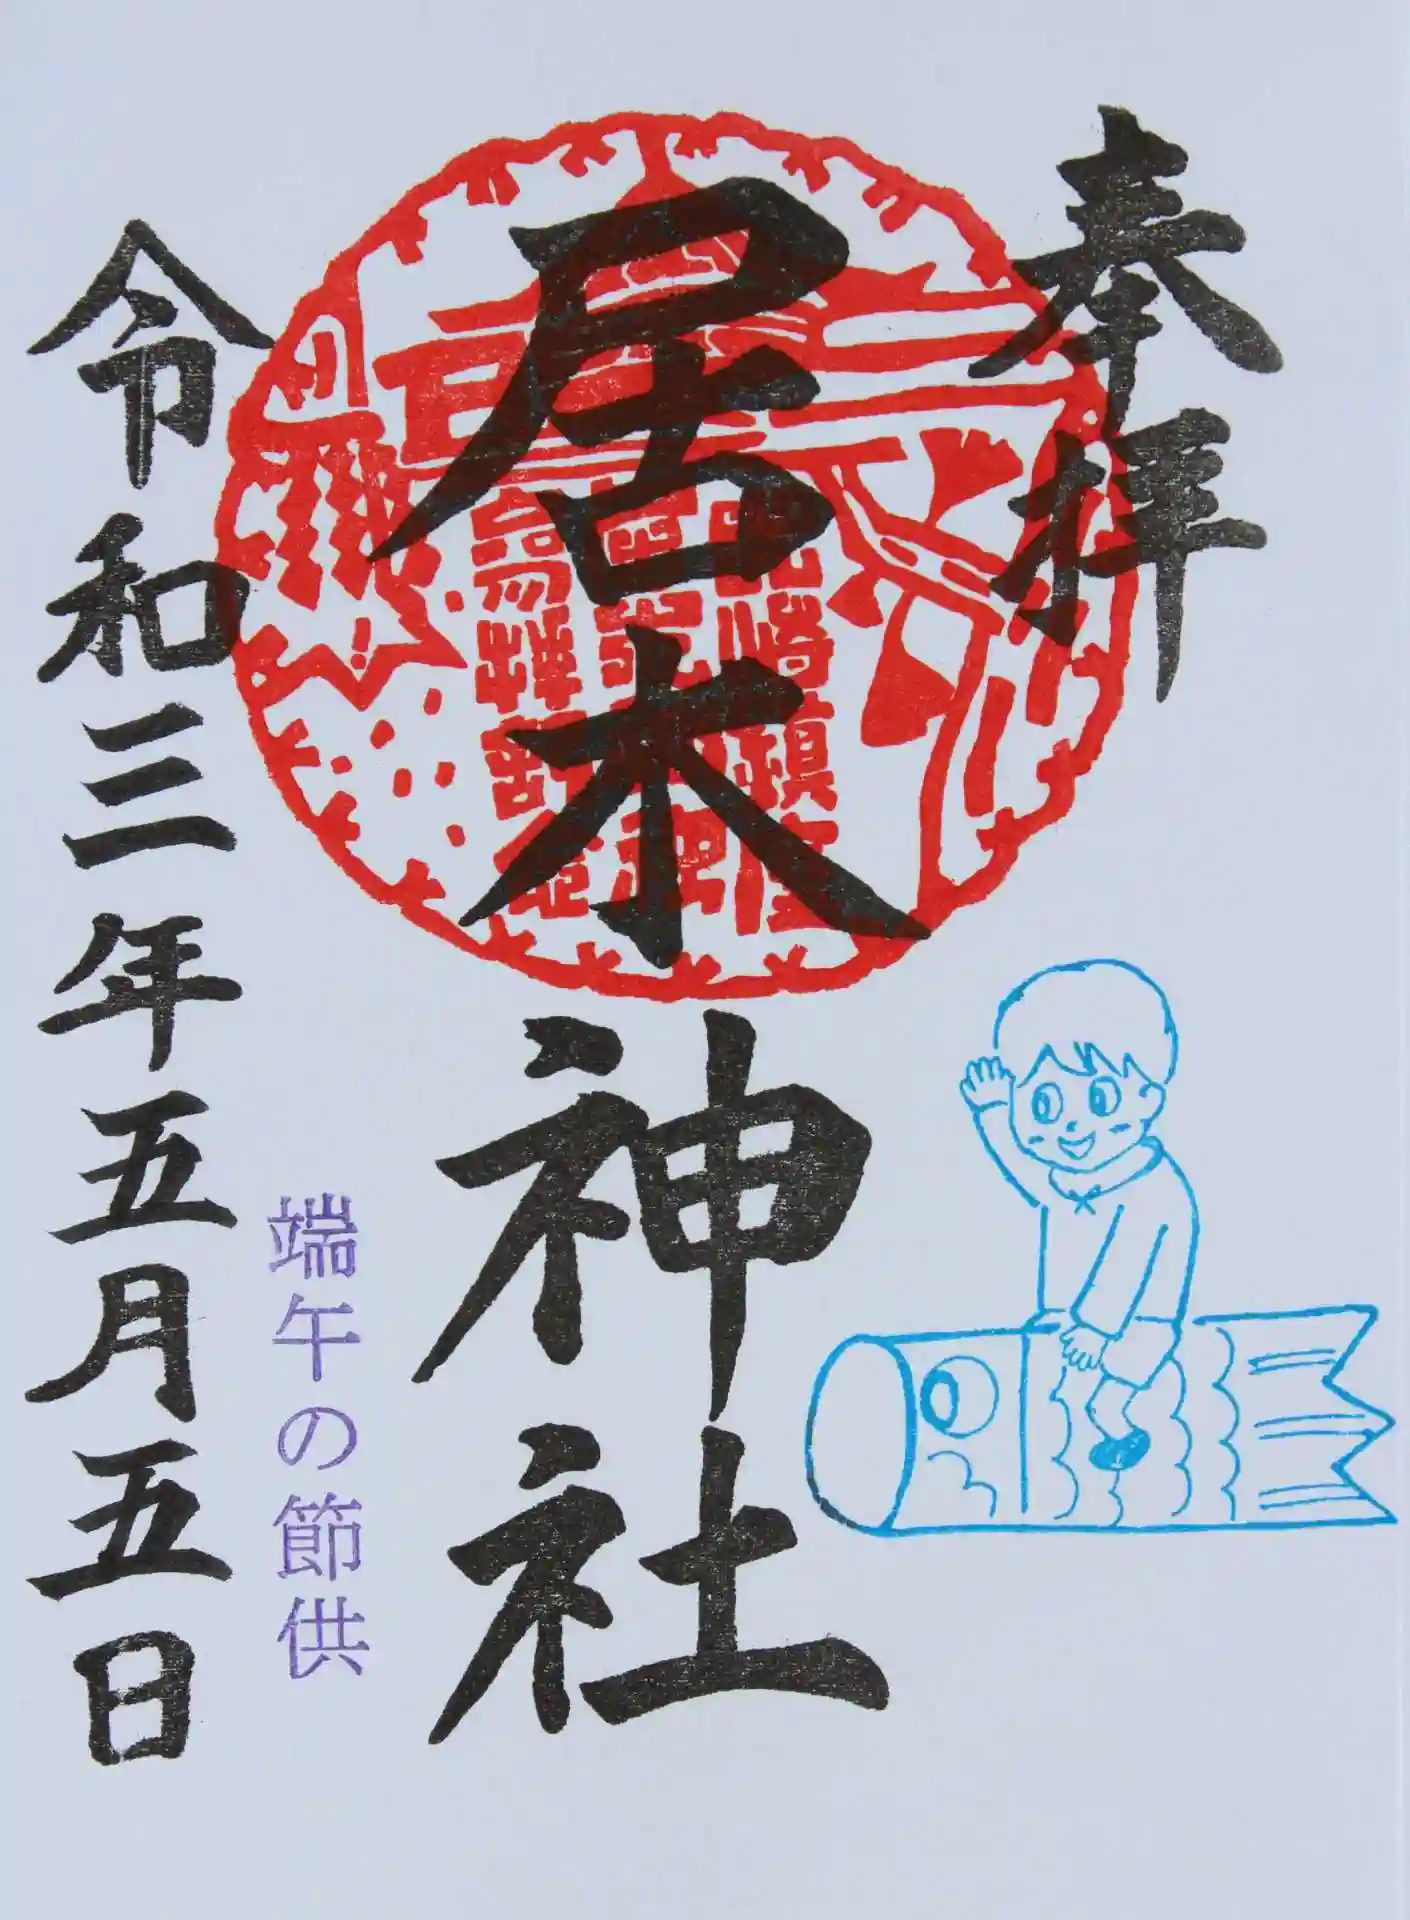 奉拝
居木神社
端午の節供
令和三年五月五日